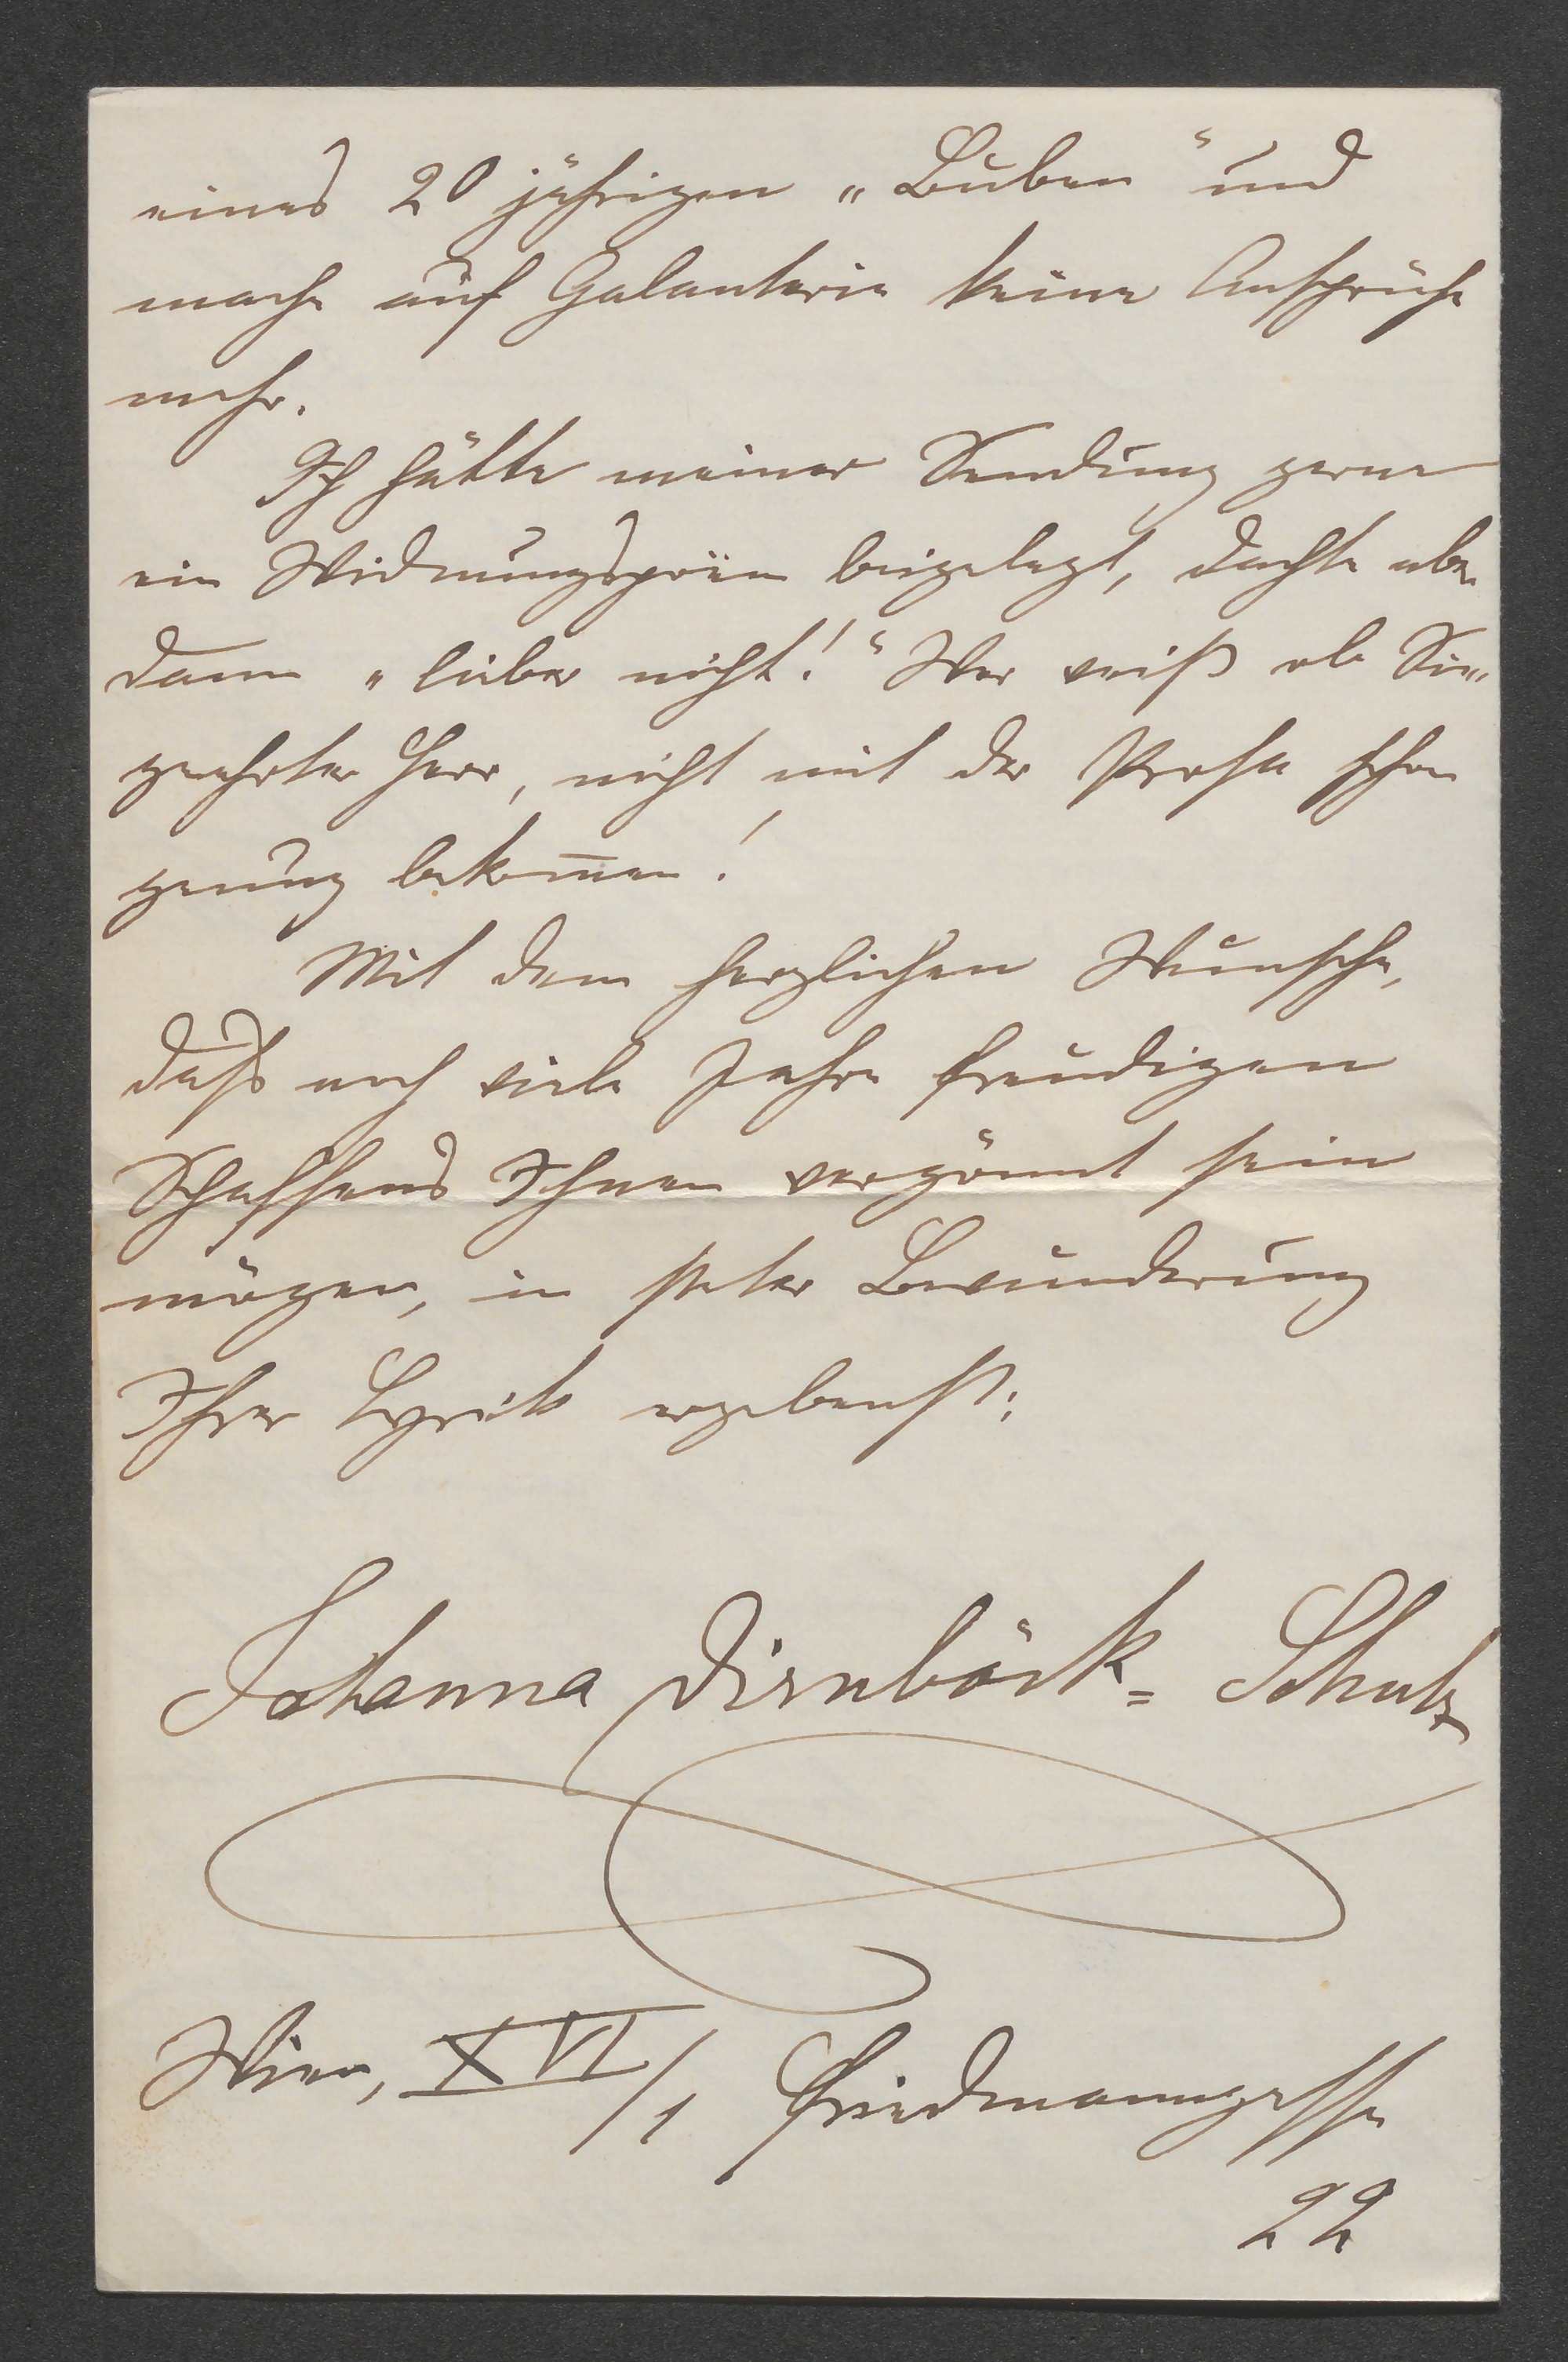 eines 20 jährigen „Buben" und
mache auf Galanterie keine Ansprüche
mehr.
Ich hätte meiner Sendung gerne
ein Widmungspoëm beigelegt, dachte aber
dann „lieber nicht!" Wer weiß ob Sie,
geehrter Herr, nicht mit der Prosa schon
genug bekom̄en!
Mit dem herzlichen Wunsche,
daß noch viele Jahre freudigen
Schaffens Ihnen vergönnt sein
mögen, in steter Bewunderung
Ihrer Lyrik ergebenst:
Johanna Dirnböck=Schulz
Wien, XVI/1 Friedmanngasse
22